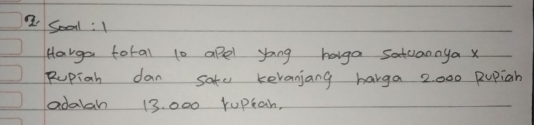 2. Soal : 1
Harga total 10 apel yang harga satuannya x
Rupiah dan satu keranjang harga 2.000 Rupiah
adalah 13.000 rupiah.